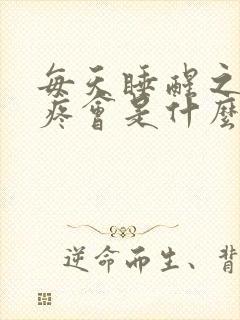 每天睡醒之
疼會是什麼
逆命而生、背